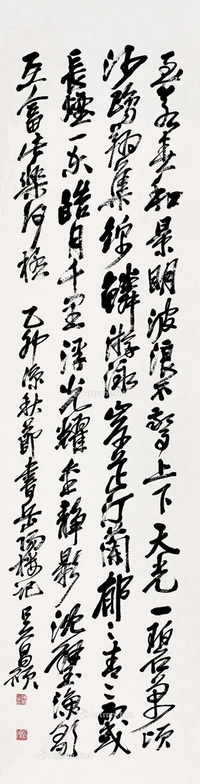 至若春和景明波浪不驚上下天光一碧萬頃
沙鷗翔集錦鱗游泳岸芷汀蘭郁〻青〻而或
長煙一空皓月千里浮光耀金靜影沈璧漁歌
互答此樂何極 乙卯深秋節書岳陽樓記